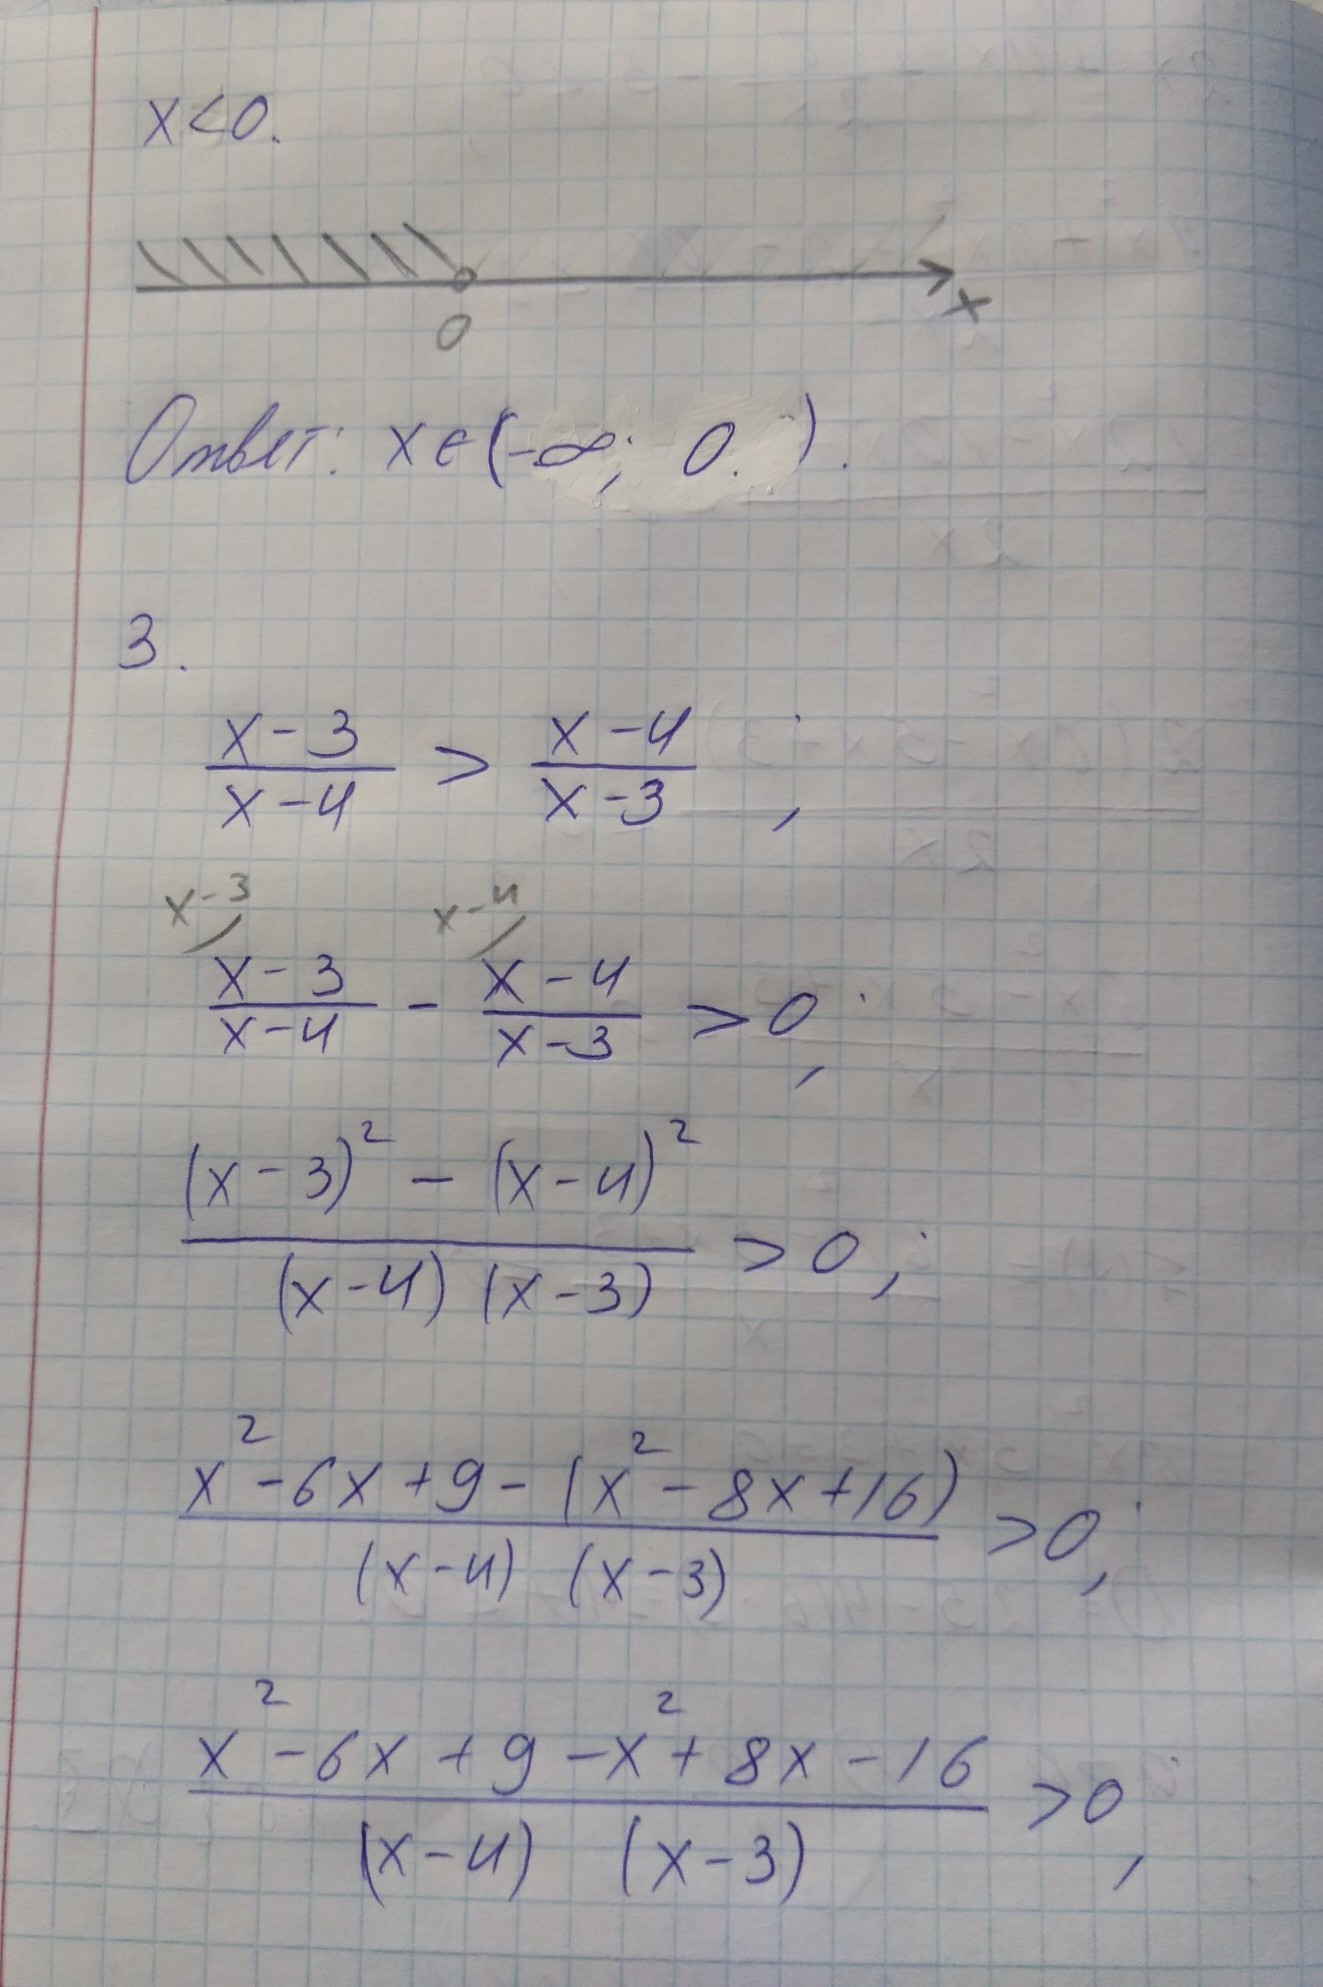 x<0.
0 x
Ответ: x∈(-∞; 0.).
3.
(x-3)/(x-4) > (x-4)/(x-3);
x-3 x-4
(x-3)/(x-4) - (x-4)/(x-3) >0;
((x-3)² - (x-4)²)/((x-4)(x-3)) >0;
(x²-6x+9-(x²-8x+16))/((x-4)(x-3)) >0;
(x²-6x+9-x²+8x-16)/((x-4)(x-3)) >0,